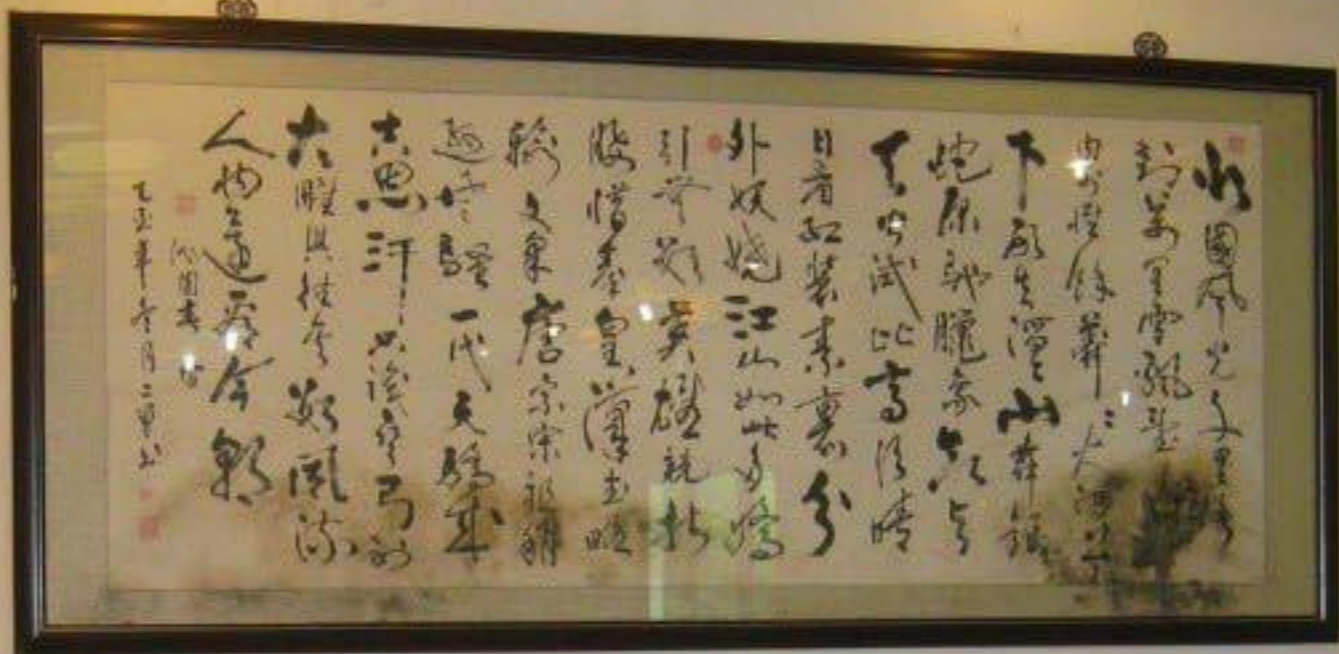 北國風光千里冰
封萬里雪飄望
内外惟餘莽〻大河上
下頓失滔〻山舞銀
蛇原馳臘象欲與
天公試比高須晴
日看紅裝素裹分
外妖嬈江山如此多嬌
引無數英雄競折
腰惜秦皇漢武略
輸文采唐宗宋祖稍
遜風騷一代天驕成
吉思汗只識彎弓射
大雕俱往矣數風流
人物還看今朝
沁園春雪
年冬月